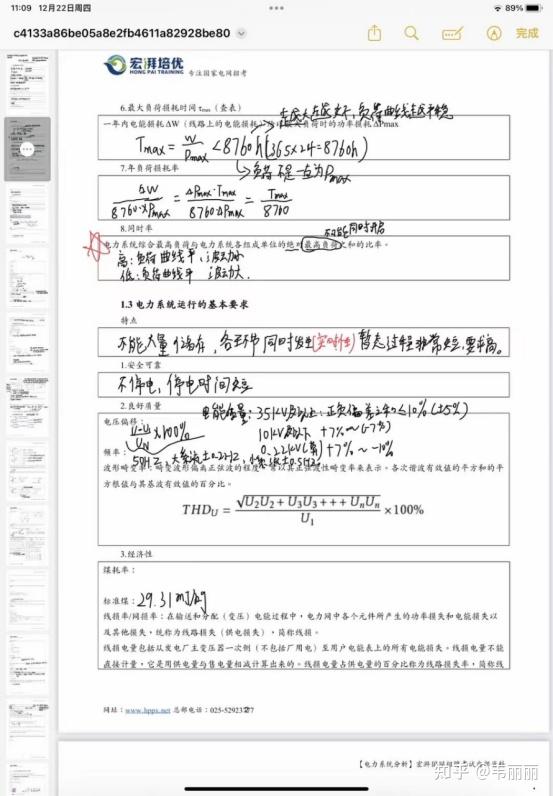 11:09 12月22日周四
89%
c4133a86be05a8e2fb4611a82928be80
完成
宏湃培优
HONG PAI TRAINING
专注国家电网招考
6.最大负荷损耗时间τmax（查表）
一年内电能损耗ΔW（线路上的电能损耗）
负荷时的功率损耗ΔPmax
Tmax = W/Pmax < 8760h (365×24=8760h)
负荷不是一直为Pmax
7.年负荷损耗率
ΔW/8760×Pmax = ΔPmax·Tmax/8760ΔPmax = Tmax/8760
8.同时率
不可能同时开启
电力系统综合最高负荷与电力系统各组成单位的绝对最高负荷之和的比率。
高：负荷曲线平，波动小
低：负荷曲线平 波动大
1.3 电力系统运行的基本要求
特点
不能大量储存，各环节同时发生(实时性) 暂态过程非常短，要求高。
1.安全可靠
不停电，停电时间短
2.良好质量
电能质量：35kV及以上：正负偏差之和≤10%(±5%)
电压偏移：
U-UN/UN ×100%
10kV及以下 +7%~(-7%)
0.22kV(单)+7%~-10%
频率：
50HZ，大系统±0.2HZ，小系统±0.5HZ
波形畸变率：畸变波形偏离正弦波的程度
以其正弦波性畸变率来表示。各次谐波有效值的平方和的平
方根值与其基波有效值的百分比。
THDU = √U2U2 + U3U3 + + + UnUn / U1 ×100%
3.经济性
煤耗率：
标准煤：29.31 MJ/kg
线损率/网损率：在输送和分配（变压）电能过程中，电力网中各个元件所产生的功率损失和电能损失以
及其他损失，统称为线路损失（供电损失），简称线损。
线损电量包括从发电厂主变压器一次侧（不包括厂用电）至用户电能表上的所有电能损失。线损电量不能
直接计量，它是用供电量与售电量相减计算出来的。线损电量占供电量的百分比称为线路损失率，简称线
网址：www.hppx.net 总部电话：025-52923277
2
【电力系统分析】宏湃
知乎 @韦丽丽